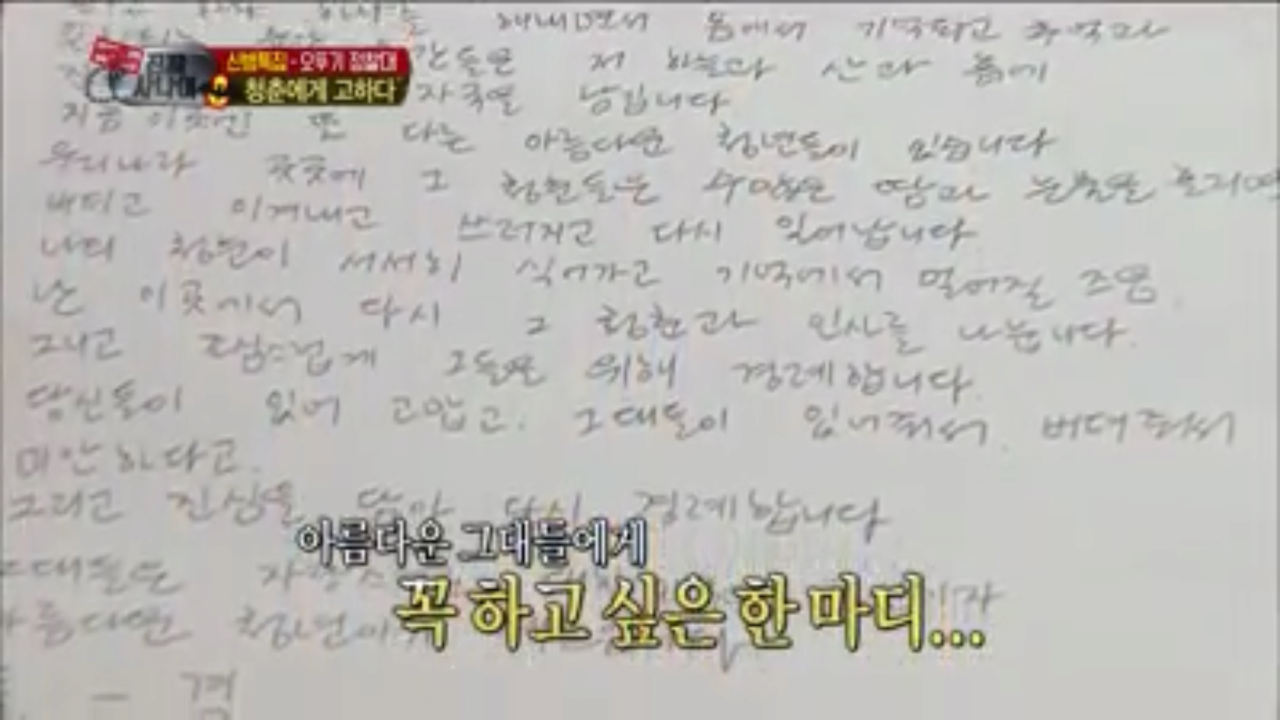 해내면서 몸에서 기억되고 추억과
진짜 사나이 신병특집 - 오뚜기 정찰대
저 하늘과 산과 몸에
청춘에게 고하다
자국을 남깁니다
지금 이곳엔 또 다른 아름다운 청년들이 있습니다
우리나라 곳곳에 그 청춘들은 수많은 땀과 눈물을 흘리며
버티고 이겨내고 쓰러지고 다시 일어납니다
나의 청춘이 서서히 식어가고 기억에서 멀어질 즈음
난 이곳에서 다시 그 청춘과 인사를 나눕니다.
그리고 조심스럽게 그들을 위해 경례합니다.
당신들이 있어 고맙고. 그대들이 있어줘서. 버텨줘서
미안하다고.
그리고 진심을 담아 다시 경례합니다
아름다운 그대들에게
그대들은
꼭 하고 싶은 한 마디...
아름다운 청년이